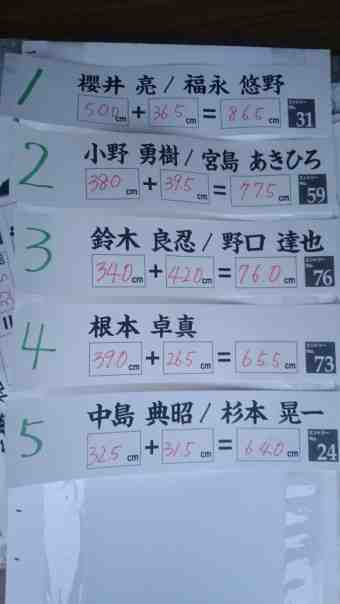 1 櫻井 亮 / 福永 悠野
50.0cm + 36.5cm = 86.5cm エントリーNo. 31
2 小野 勇樹 / 宮島 あきひろ
38.0cm + 39.5cm = 77.5cm エントリーNo. 59
3 鈴木 良忍 / 野口 達也
34.0cm + 42.0cm = 76.0cm エントリーNo. 76
4 根本 卓真
39.0cm + 26.5cm = 65.5cm エントリーNo. 73
5 中島 典昭 / 杉本 晃一
32.5cm + 31.5cm = 64.0cm エントリーNo. 24